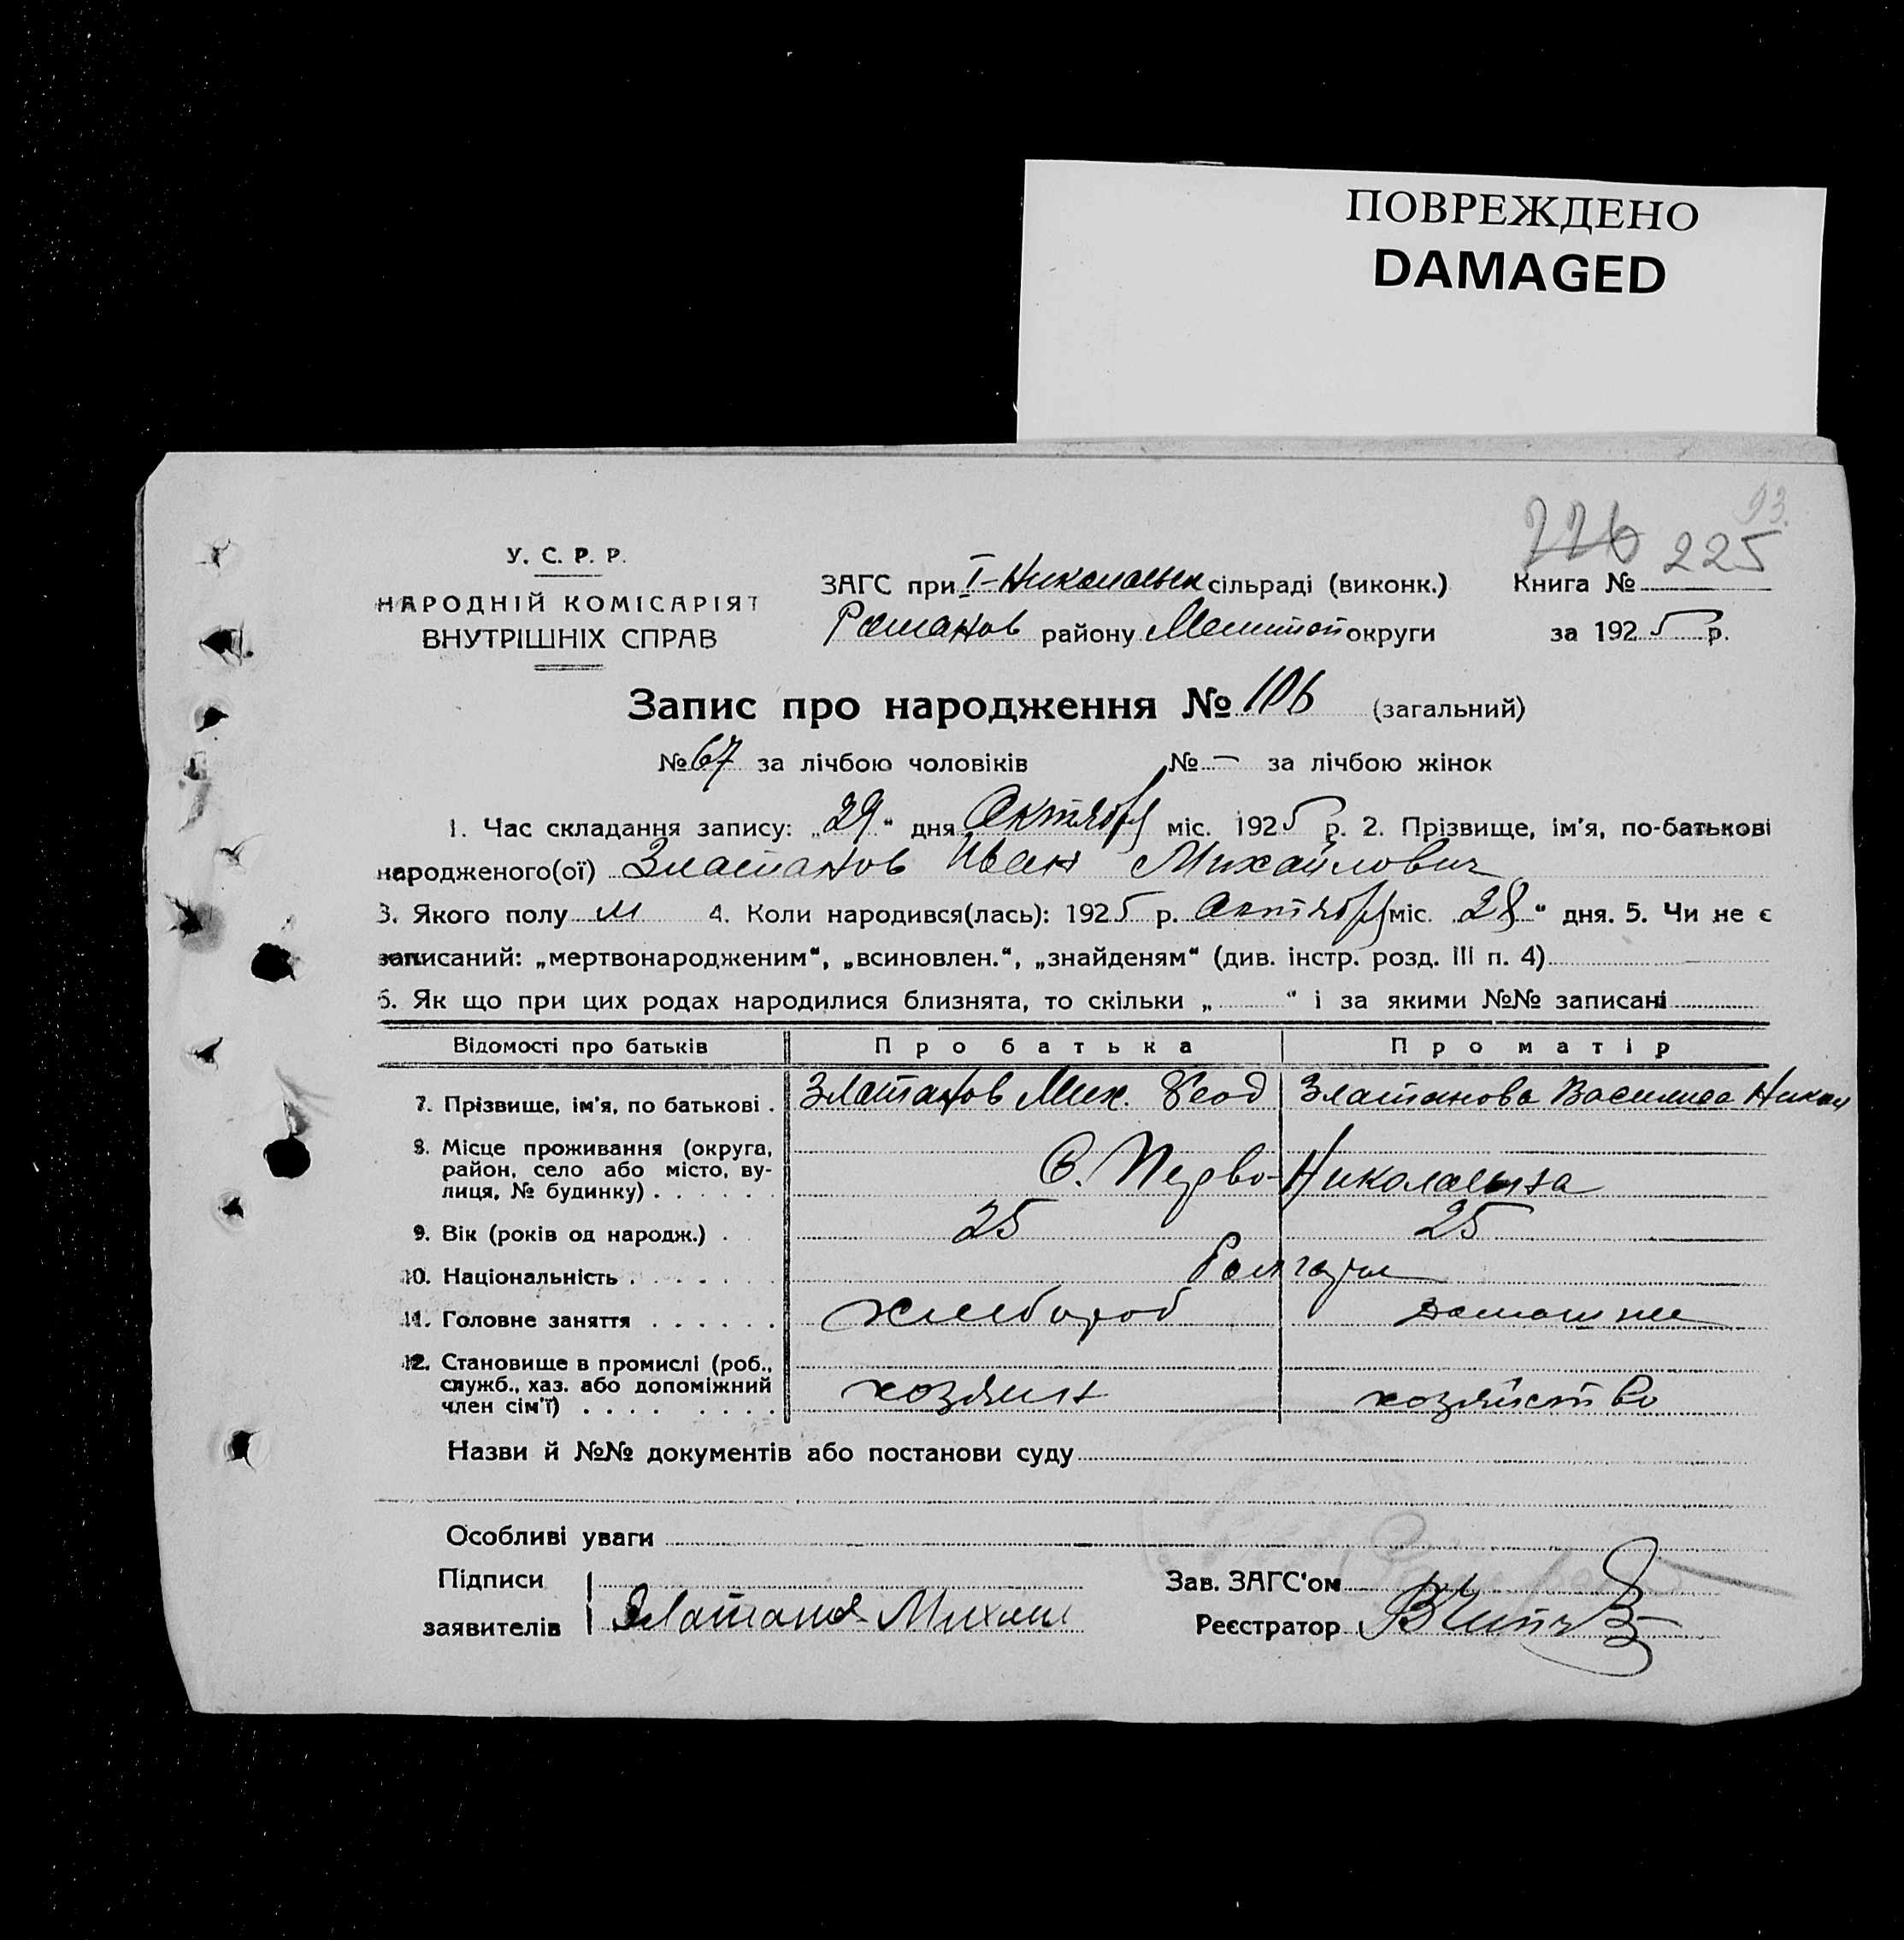 ПОВРЕЖДЕНО
DAMAGED
93.
226 225
У. С. Р. Р.
НАРОДНІЙ КОМІСАРІЯТ
ВНУТРІШНІХ СПРАВ
ЗАГС при I-Николаевск сільраді (виконк.) Книга №
Романов району Мелитоп округи за 1925 р.
Запис про народження № 106 (загальний)
№ 67 за лічбою чоловіків № — за лічбою жінок
1. Час складання запису: „29“ дня Октября міс. 1925 р. 2. Прізвище, ім'я, по-батькові
народженого(ої) Златанов Иван Михайлович
3. Якого полу м 4. Коли народився(лась): 1925 р. Октября міс. 28“ дня. 5. Чи не є
записаний: „мертвонародженим“, „всиновлен.“, „знайденям“ (див. інстр. розд. III п. 4)
6. Як що при цих родах народилися близнята, то скільки „ “ і за якими №№ записані
Відомості про батьків Про батька Про матір
7. Прізвище, ім'я, по батькові . Златанов Мих. Феод Златанова Василиса Никол
8. Місце проживання (округа,
район, село або місто, ву-
лиця, № будинку) . . . . . С. Перво-Николаевка
9. Вік (років од народж.) . 25 25
10. Національність . . . . . . . болгары
11. Головне заняття . . . . . . хлебороб домашнее
12. Становище в промислі (роб.,
служб., хаз. або допоміжний
член сім'ї) . . . . . . . . хозяин хозяйство
Назви й №№ документів або постанови суду
Особливі уваги
Підписи Зав. ЗАГС'ом
заявителів Златанов Михаил Реєстратор